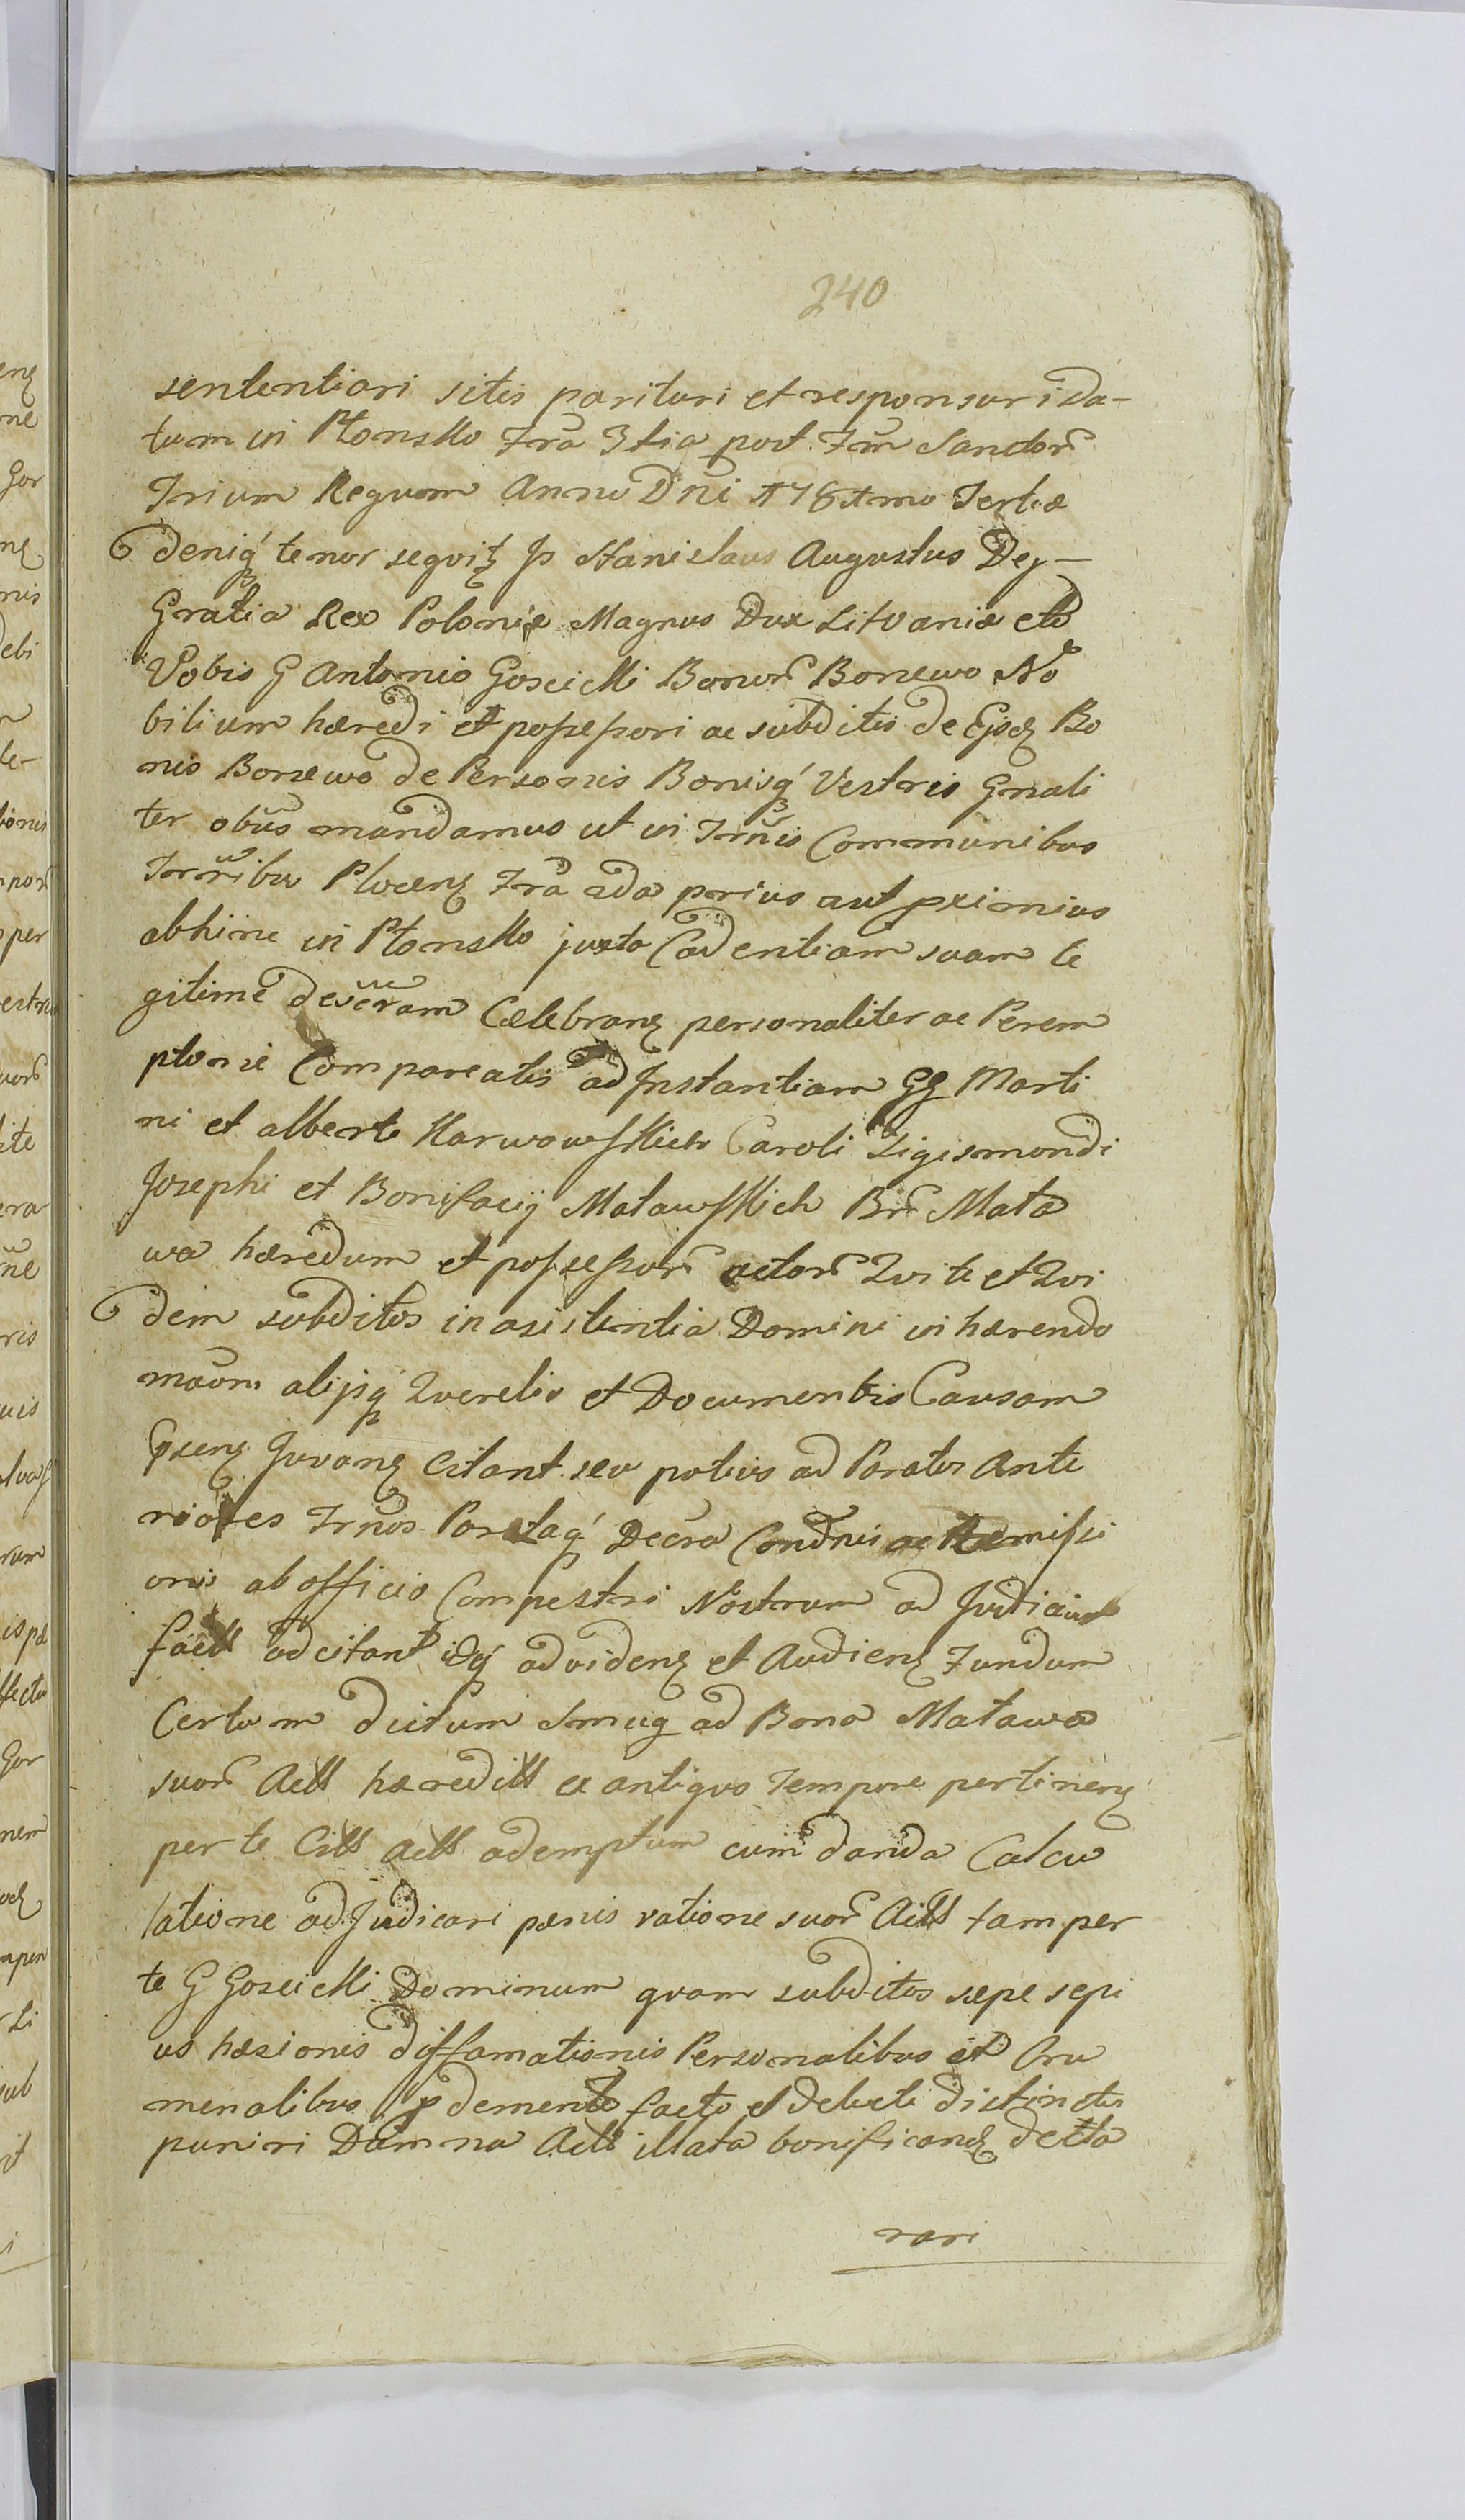 240
sententiari sitis parituri et responsuri da-
tum in Płonsko Fra 3tia post Fm Sanctor
Trium Regum Anno Dni 1781mo Tertiæ
deniq tenor seqvit Is Stanislaus Augustus Dej
Gratia Rex Poloniæ Magnus Dux Litvaniæ etc
Vobis G Antonio Goscicki Bonor Bonewo No
bilium hæredi et possessori ac subditis de Ejsd Bo
nis Borzewo de Personis Bonisq Vestris Gnali
ter obus mandamus ut in Trnis Communibus
Trribus Plocens Fra 2da prius aut pximius
abhinc in Płonsko juxta Cadentiam suam le
gitime descram Celebrand personaliter ac Perem
ptorie Compareatis ad Instantiam GG Marti
ni et Alberti Karwowskich Caroli Sigismondi
Josephi et Bonifacij Matawskich Br Mata
wa hæredum et possessor actor Qvi te et Qvi
dem subditos in asistentia Domini inhærendo
maon alijsq Qverelis et Documentis Causam
psene Juvane Citant seu potius ad Paratos Ante
riores Trnos Partaq Decra Condnis ac Remissi
onis ab officio Compestri Nostrum ad Judicium
fact adcitant idq ad vidend et Audiend Fundum
Certum dictum Smug ad Bona Matawa
suor Actt hæreditt ex antiqvo Tempore pertinens
per te Citt Actt ademptum cum danda Calcu
latione adjudicari pænis ratione suor Actt tam per
te G Goscicki Dominum qvam subditos sæpe sepi
us hæsionis diffamationis Personalibus et Cru
menalibus p demerito facto et delicti distinctis
puniri Damna Actt illata bonificand decta
rari